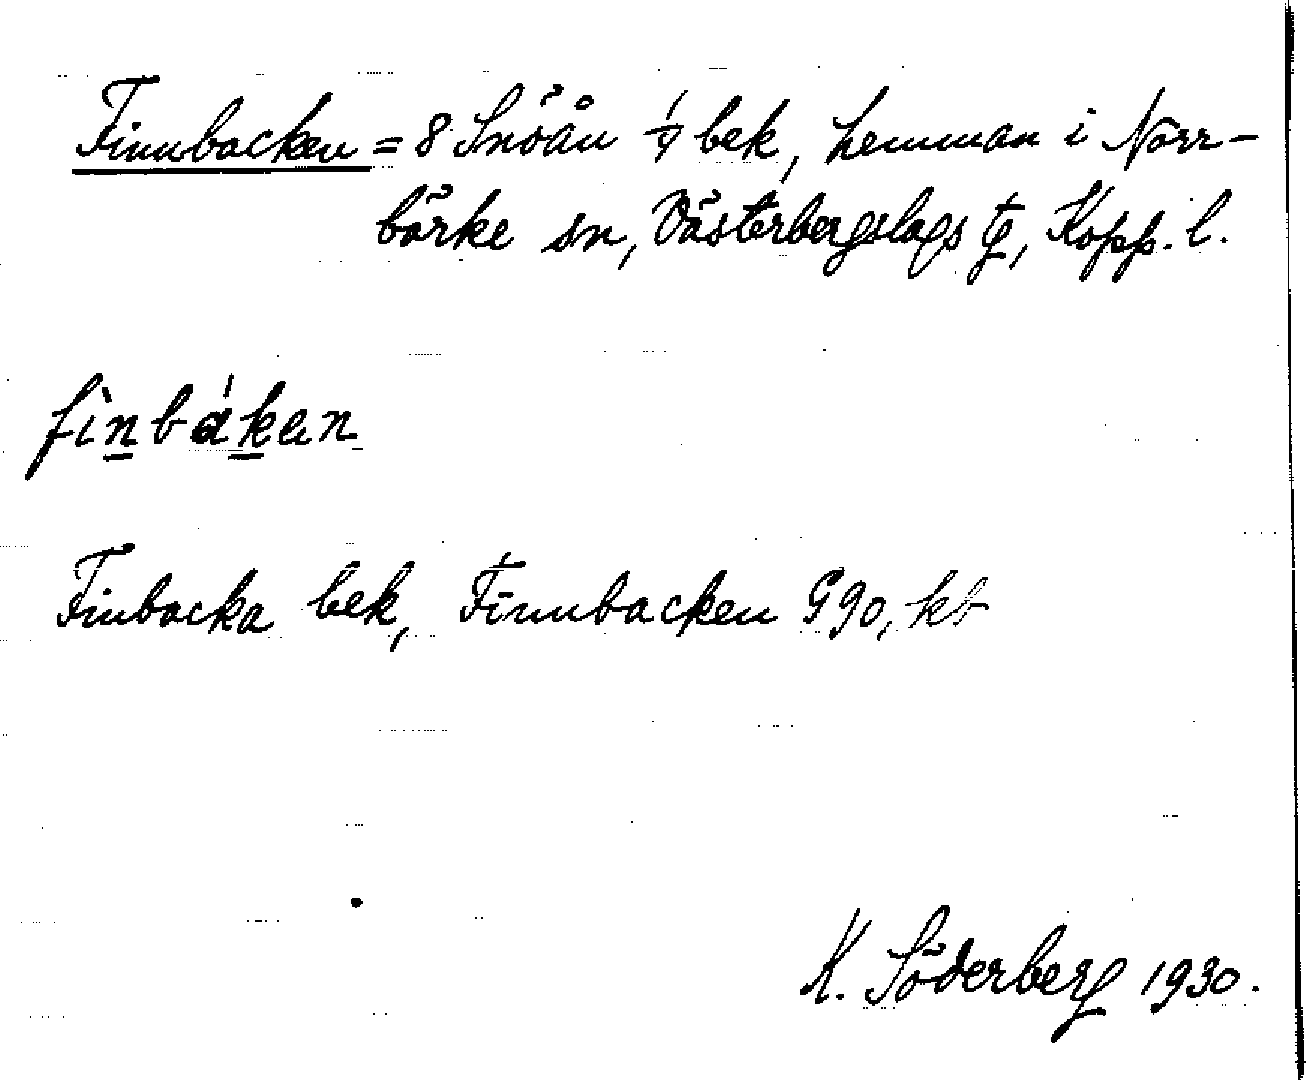 Finnbacken = 8 Snöån 1/4 bek, hemman i Norr-
bärke sn, Västerbergslags tg, Kopp. l.
fìnbákan
Finbacka bek, Finnbacken G90, kb
K. Söderberg 1930.